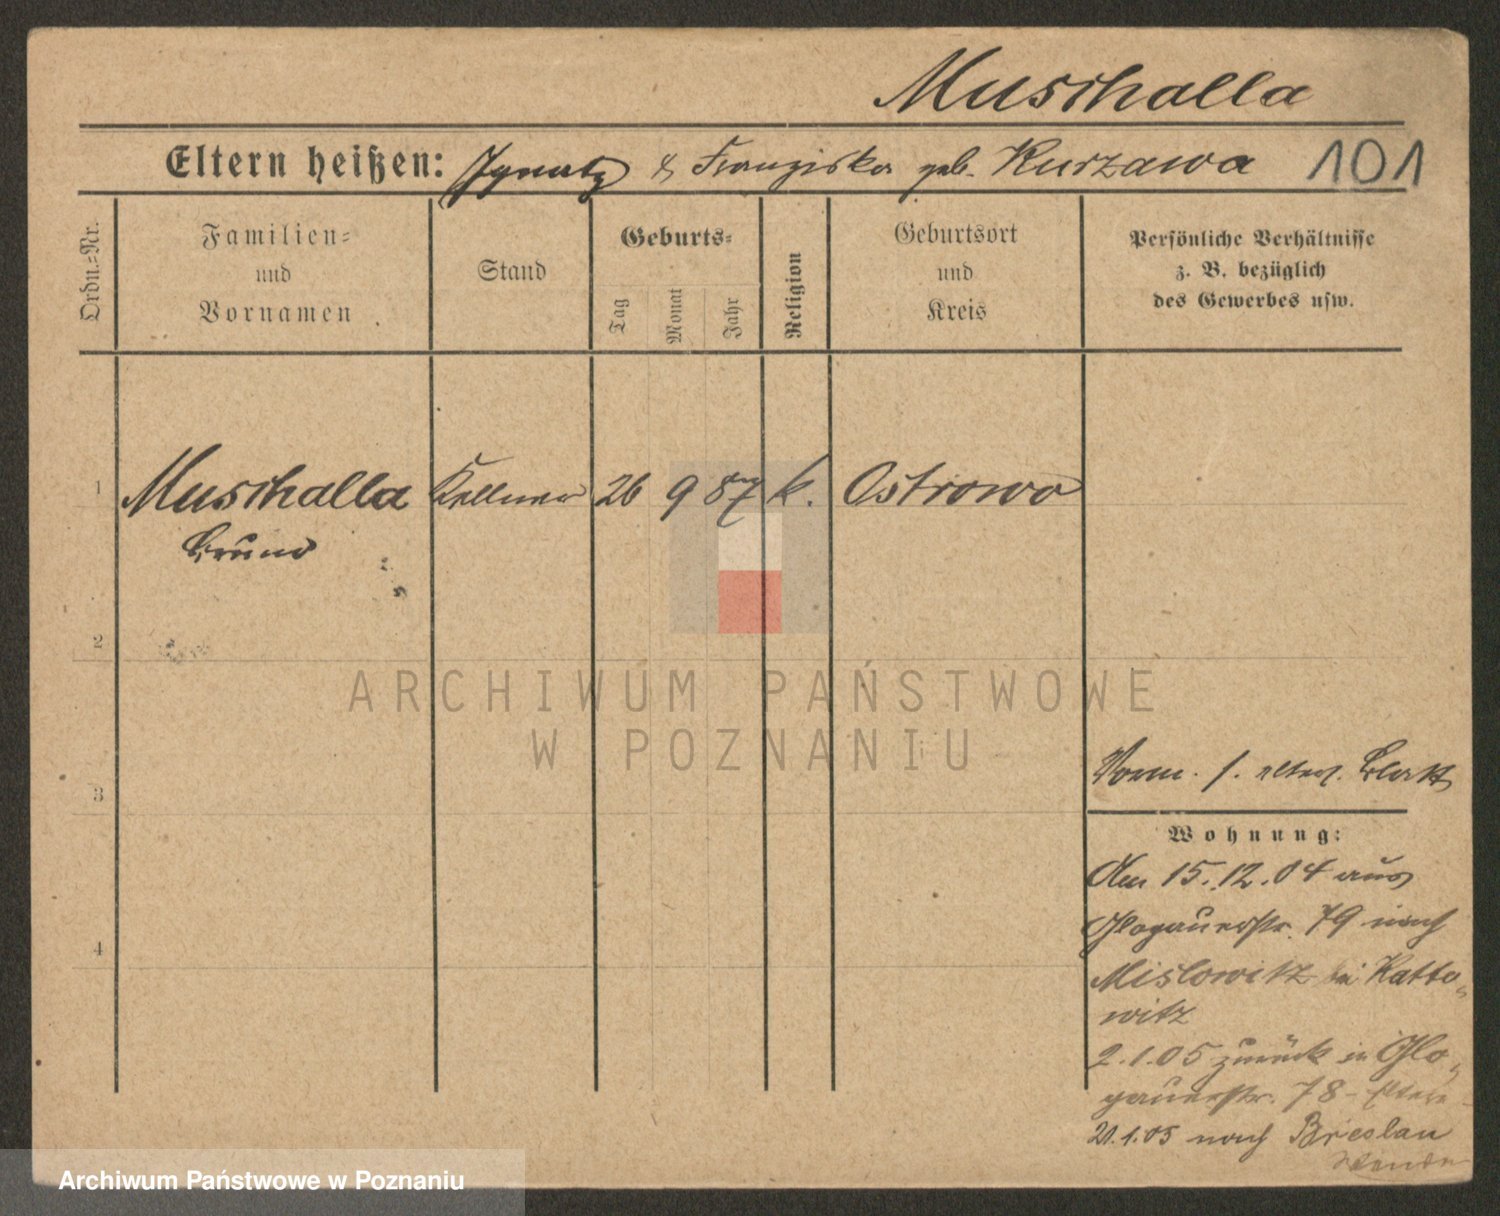 Musihalla
Eltern heißen: Ignatz & Franziska geb. Kurzawa 101
Ordn.=Nr.
Familien=
und
Vornamen
Stand
Geburts=
Tag
Monat
Jahr
Religion
Geburtsort
und
Kreis
Persönliche Verhältnisse
z. B. bezüglich
des Gewerbes usw.
1 Musihalla Kellner 26 9 87 k. Ostrowo
Bruno
2
3
4
ARCHIWUM PAŃSTWOWE
W POZNANIU
Vorm. s. elterl. Blatt
Wohnung:
Am 15.12.04 aus
Glogauerstr. 79 nach
Mislowitz bei Katto-
witz
2.1.05 zurück in Glo-
gauerstr. 78 - Eltern
21.1.05 nach Breslau
Archiwum Państwowe w Poznaniu